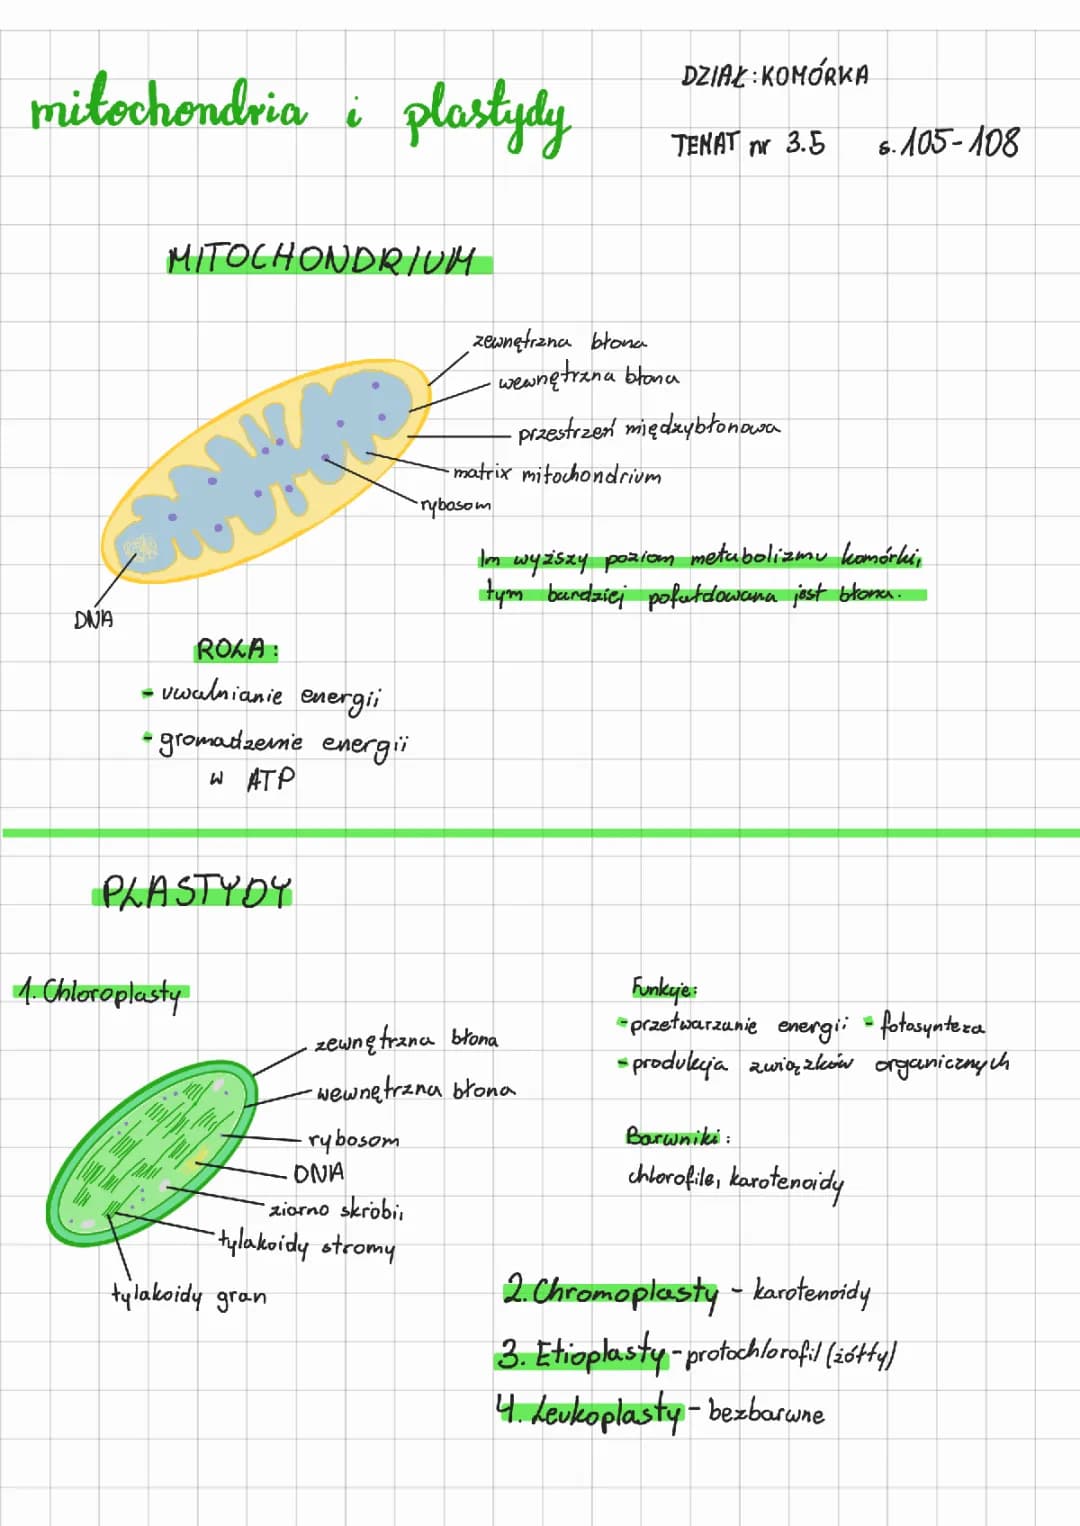 mitochondria i plastydy
DZIAŁ: KOMÓRKA
TEMAT nr 3.5 s. 105-108
MITOCHONDRIUM
zewnętrzna błona
wewnętrzna błona
przestrzeń międzybłonowa
matrix mitochondrium
rybosom
DNA
Im wyższy poziom metabolizmu komórki,
tym bardziej pofałdowana jest błona.
ROLA:
- uwalnianie energii
- gromadzenie energii
w ATP
PLASTYDY
1. Chloroplasty
zewnętrzna błona
wewnętrzna błona
rybosom
DNA
ziarno skrobii
tylakoidy stromy
tylakoidy gran
Funkcje:
- przetwarzanie energii - fotosynteza
- produkcja związków organicznych
Barwniki:
chlorofile, karotenoidy
2. Chromoplasty - karotenoidy
3. Etioplasty - protochlorofil (żółty)
4. Leukoplasty - bezbarwne